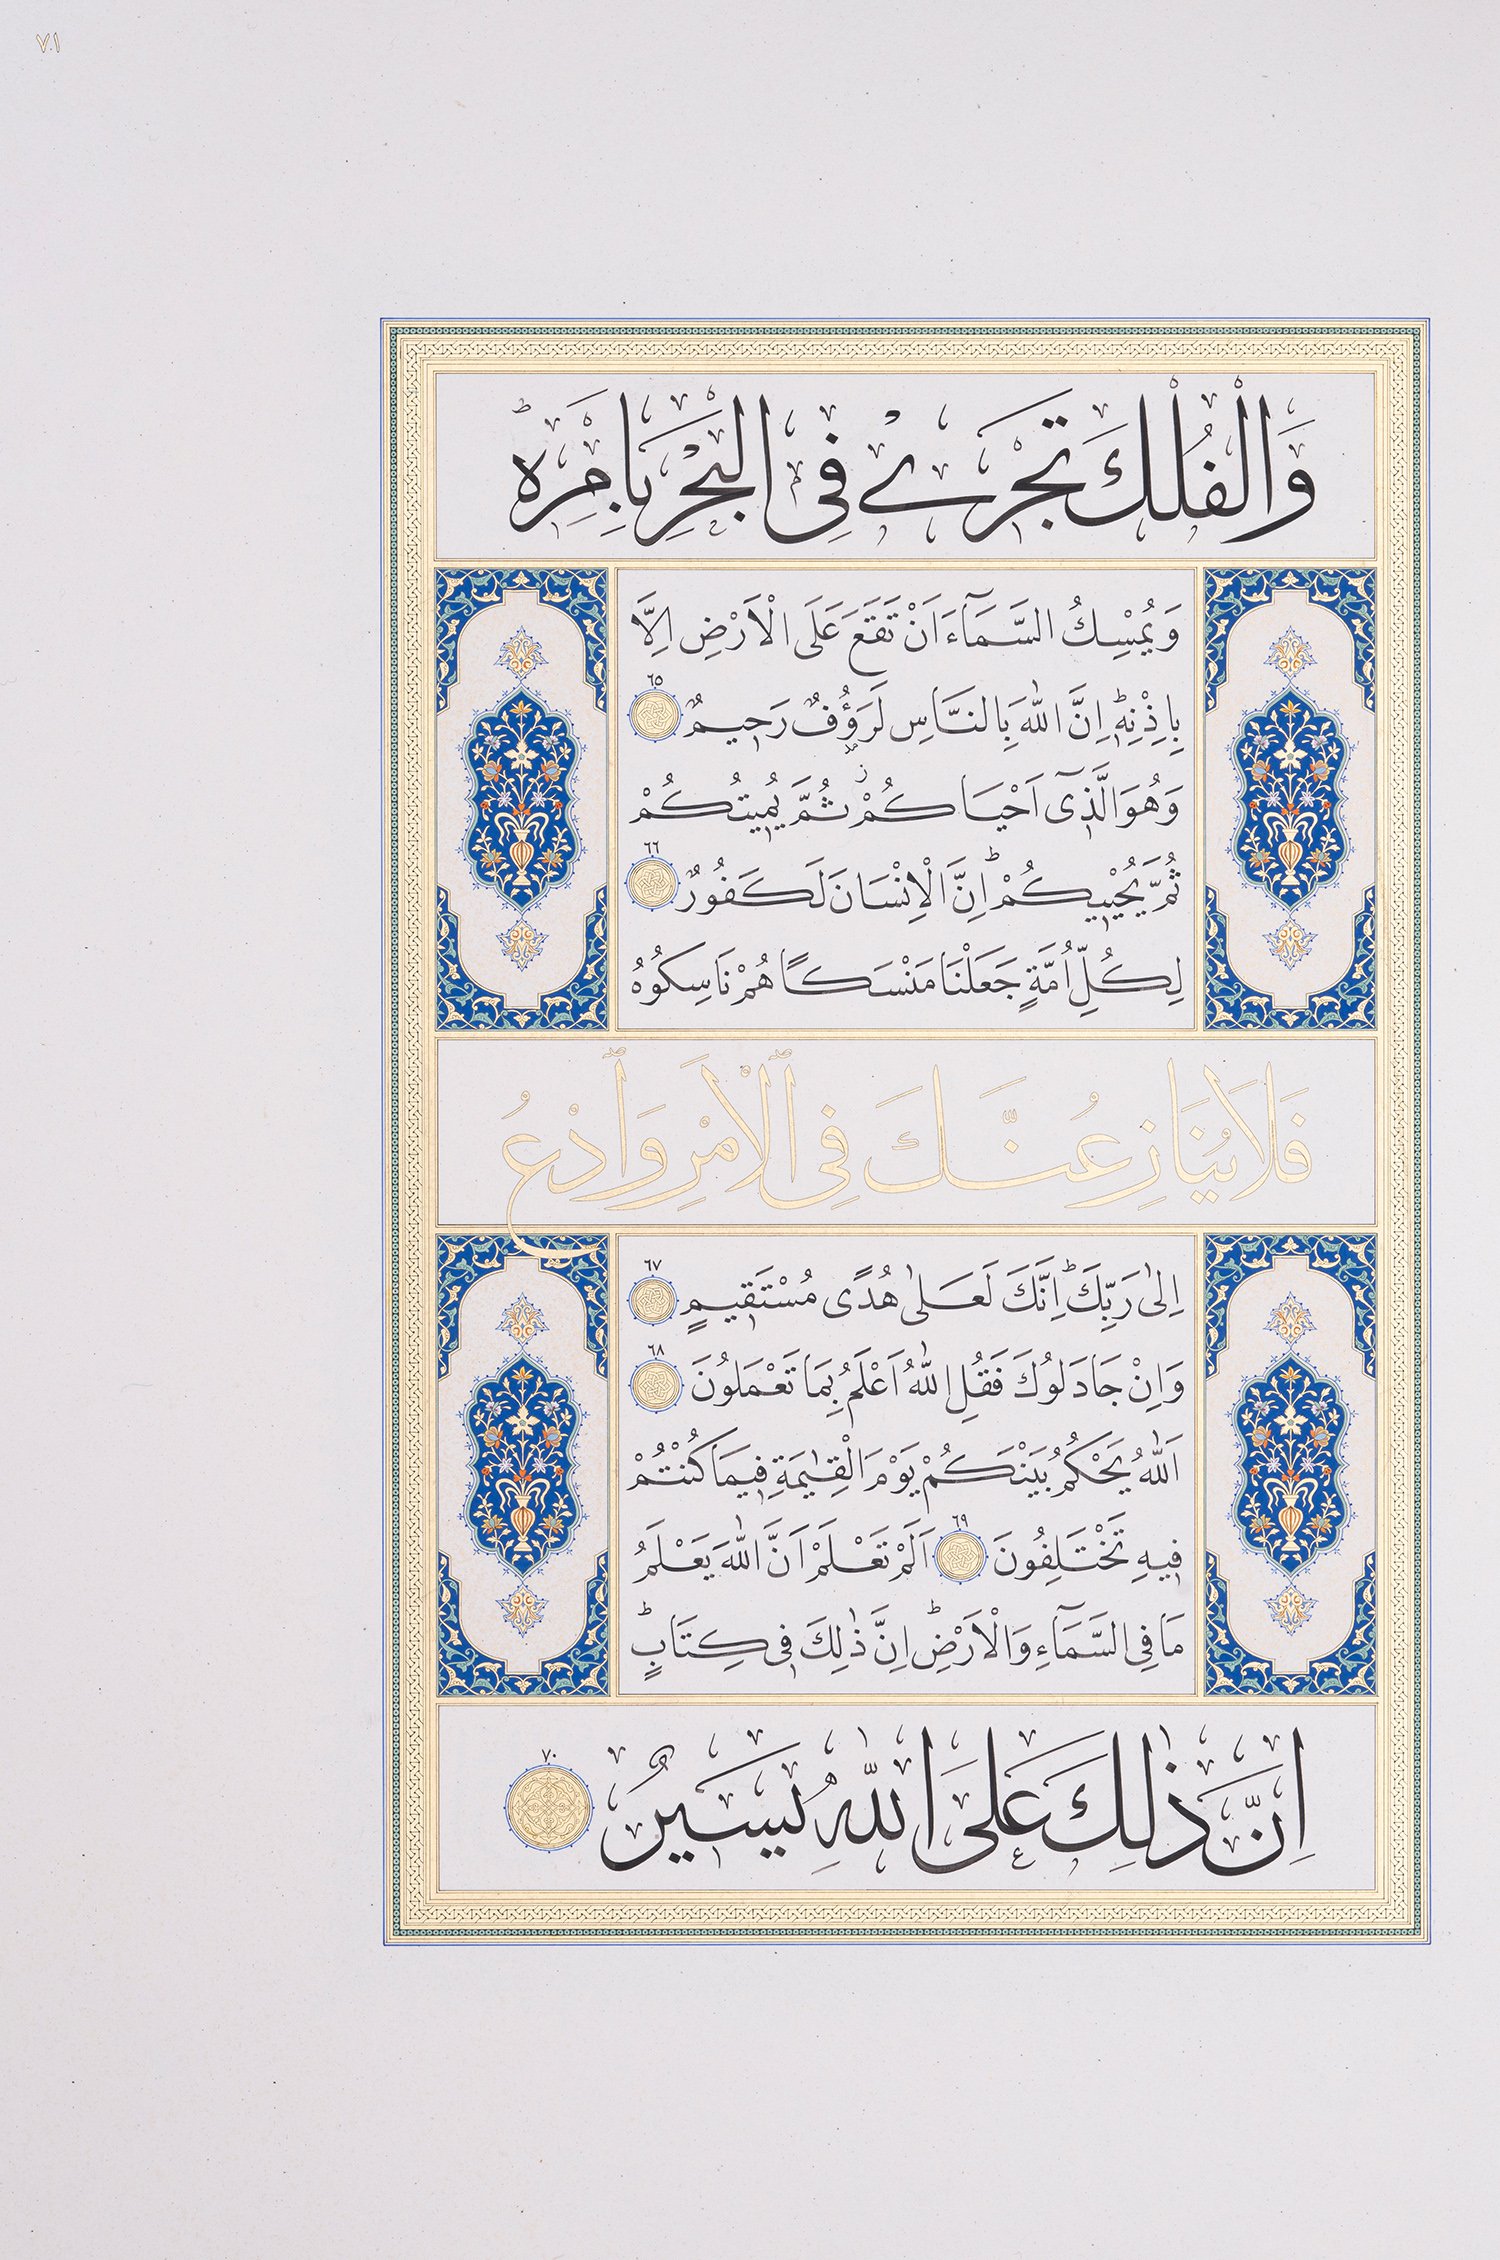 ٧٠١
وَالْفُلْكَ تَجْرٖي فِي الْبَحْرِ بِاَمْرِهٖؕ
وَيُمْسِكُ السَّمَآءَ اَنْ تَقَعَ عَلَى الْاَرْضِ اِلَّا
بِاِذْنِهٖؕ اِنَّ اللّٰهَ بِالنَّاسِ لَرَؤُفٌ رَحٖيمٌ ٦٥
وَهُوَ الَّذٖٓي اَحْيَاكُمْؗ ثُمَّ يُمٖيتُكُمْ
ثُمَّ يُحْيٖيكُمْؕ اِنَّ الْاِنْسَانَ لَكَفُورٌ ٦٦
لِكُلِّ اُمَّةٍ جَعَلْنَا مَنْسَكًا هُمْ نَاسِكُوهُ
فَلَا يُنَازِعُنَّكَ فِي الْاَمْرِ وَادْعُ
اِلٰى رَبِّكَؕ اِنَّكَ لَعَلٰى هُدًى مُسْتَقٖيمٍ ٦٧
وَاِنْ جَادَلُوكَ فَقُلِ اللّٰهُ اَعْلَمُ بِمَا تَعْمَلُونَ ٦٨
اَللّٰهُ يَحْكُمُ بَيْنَكُمْ يَوْمَ الْقِيٰمَةِ فٖيمَا كُنْتُمْ
فٖيهِ تَخْتَلِفُونَ ٦٩ اَلَمْ تَعْلَمْ اَنَّ اللّٰهَ يَعْلَمُ
مَا فِي السَّمَآءِ وَالْاَرْضِؕ اِنَّ ذٰلِكَ فٖي كِتَابٍؕ
اِنَّ ذٰلِكَ عَلَى اللّٰهِ يَسٖيرٌ ٧٠